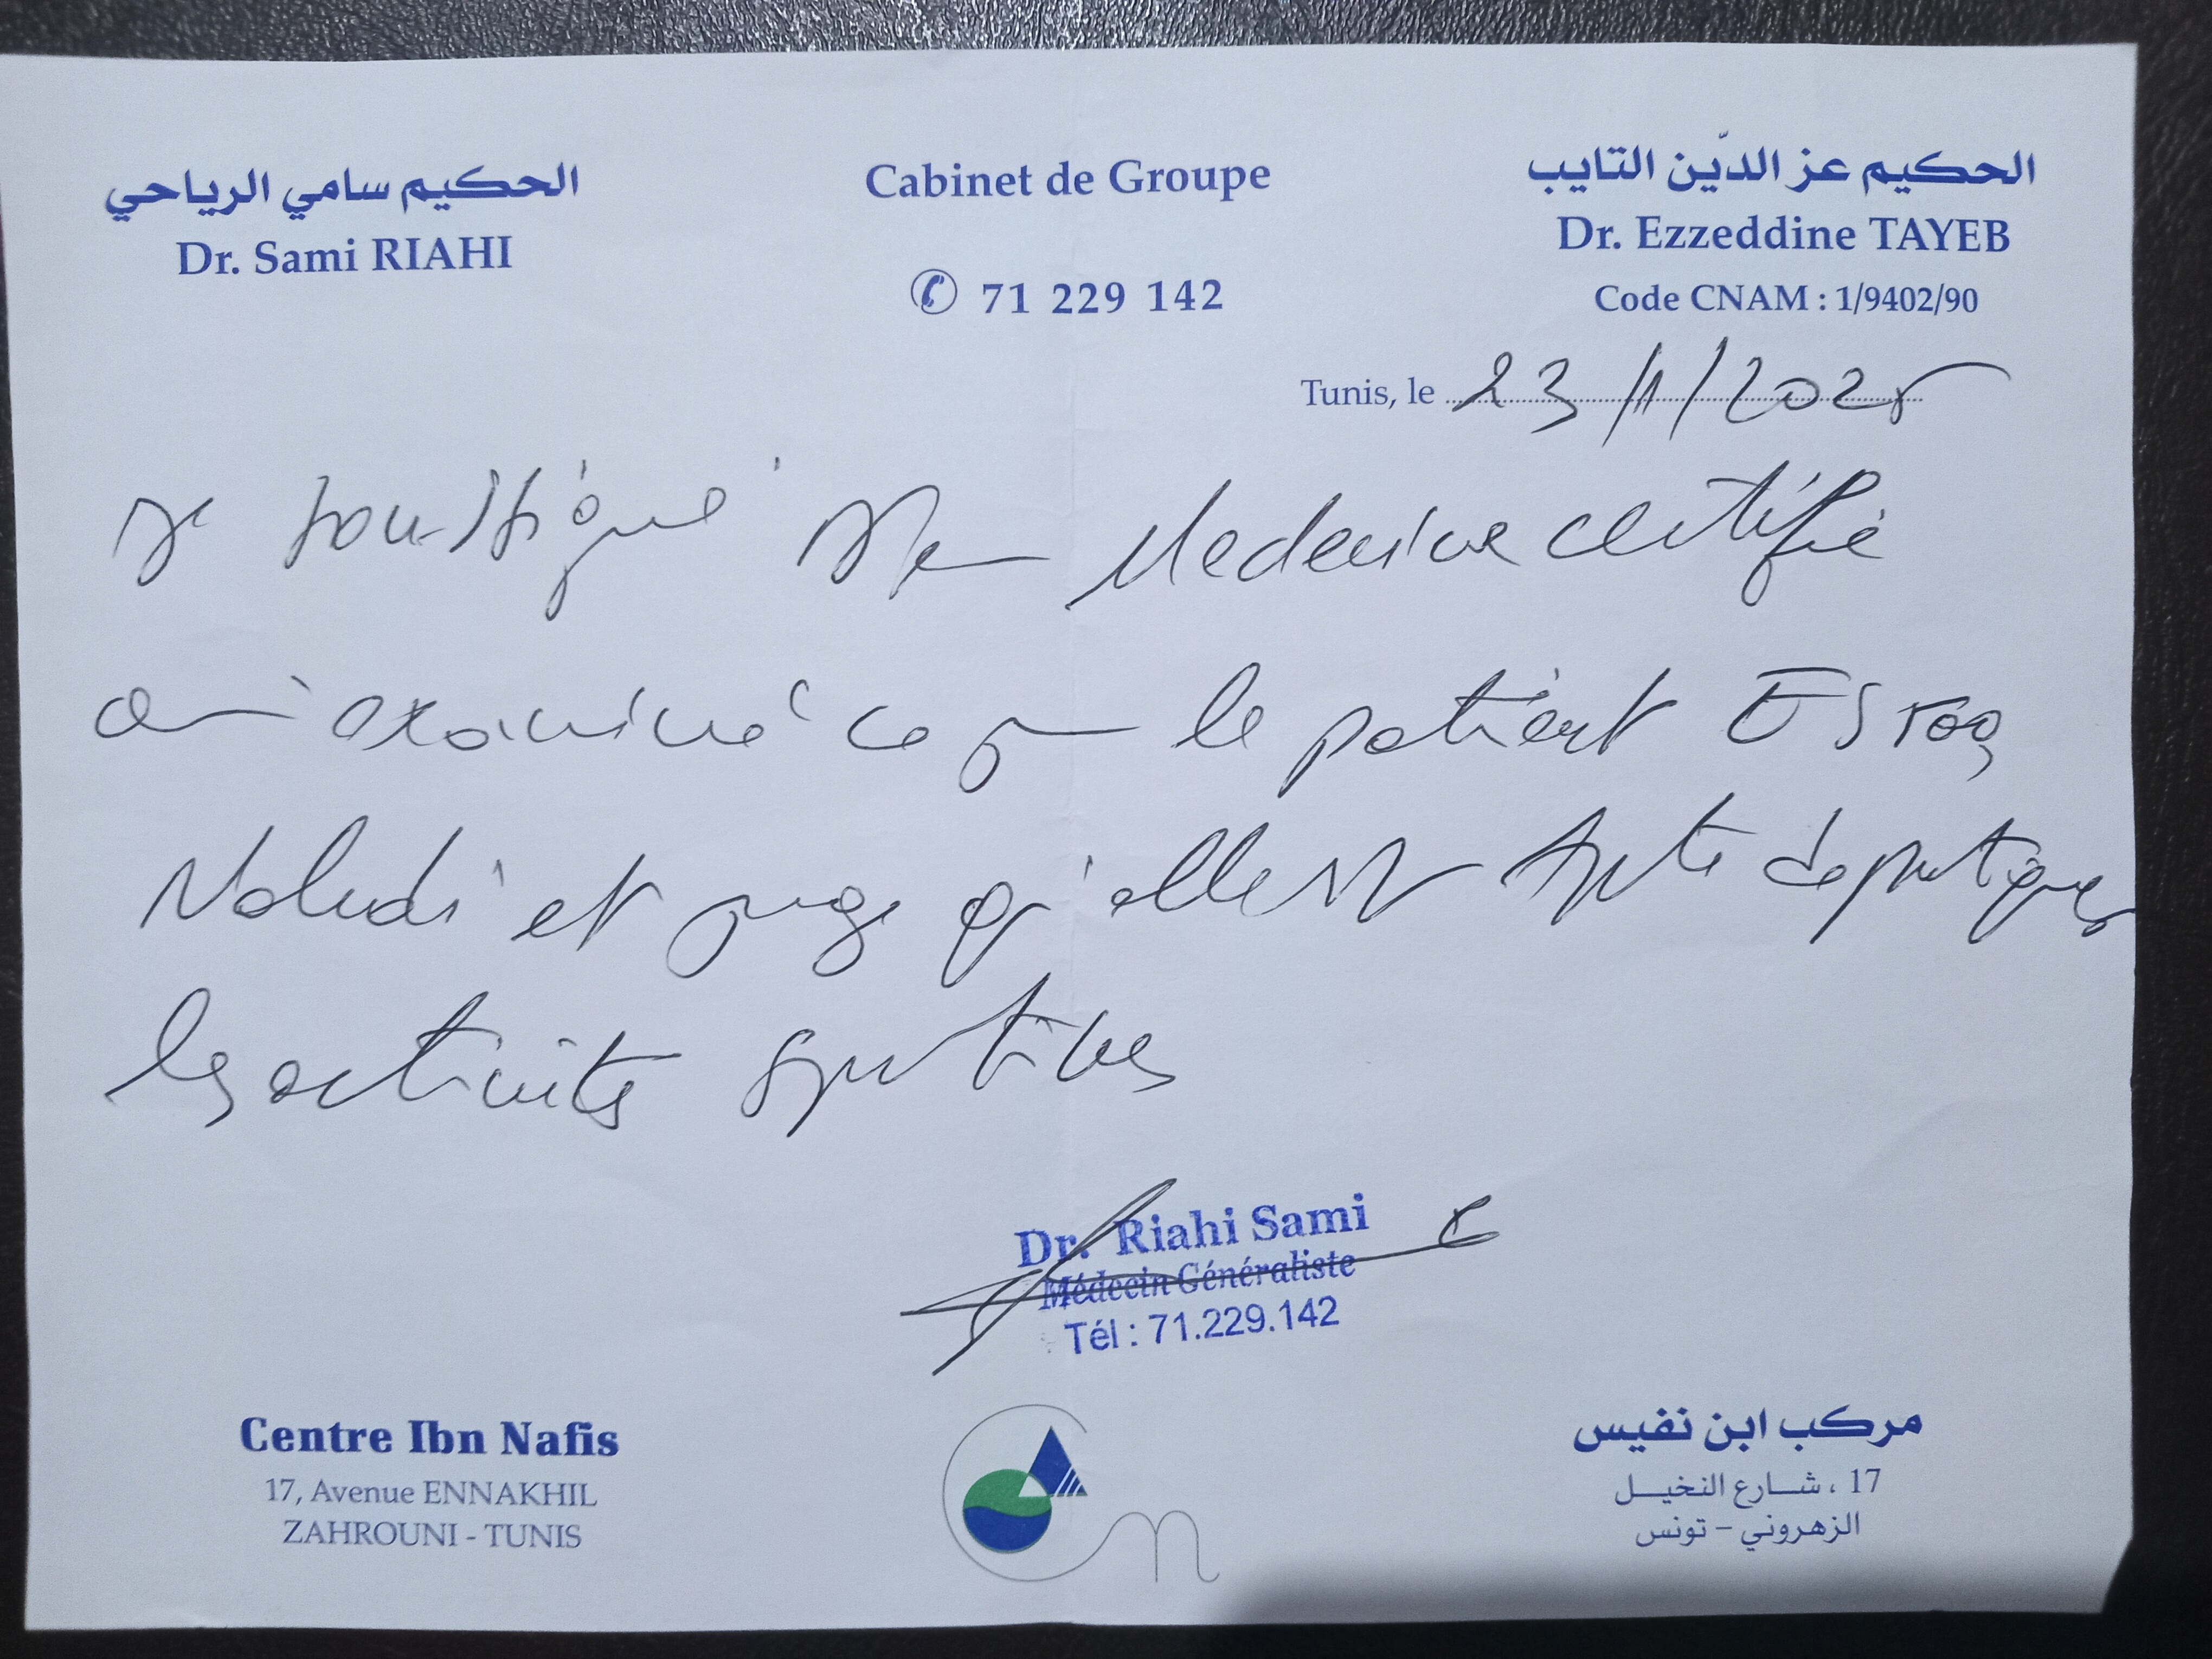 الحكيم سامي الرياحي
Dr. Sami RIAHI
Cabinet de Groupe
71 229 142
الحكيم عز الدّين التايب
Dr. Ezzeddine TAYEB
Code CNAM : 1/9402/90
Tunis, le 23/11/2025
Je soussigné Dr en Medecine certifie
avoir examiné ce jour le patient Esraa
et juge qu'elle est Apte de pratiquer
les activités sportives
Dr. Riahi Sami
Médecin Généraliste
Tél : 71.229.142
Centre Ibn Nafis
17, Avenue ENNAKHIL
ZAHROUNI - TUNIS
مركب ابن نفيس
17 ، شـــارع النخيـــل
الزهروني - تونس